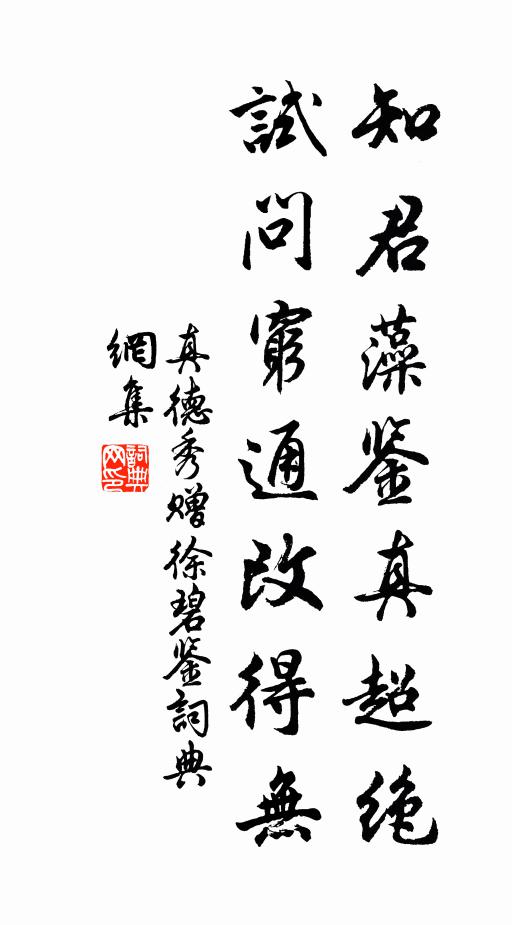 知君藻鉴真超绝
試問窮通改得無
真德秀赠徐碧鉴詞典
網集
詞典网印